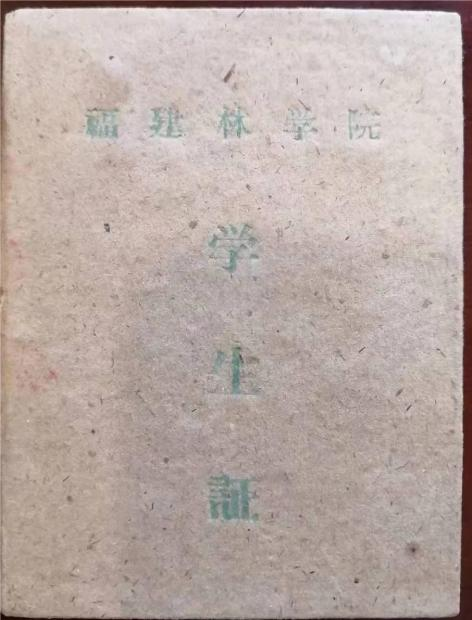 福建林学院
学
生
証